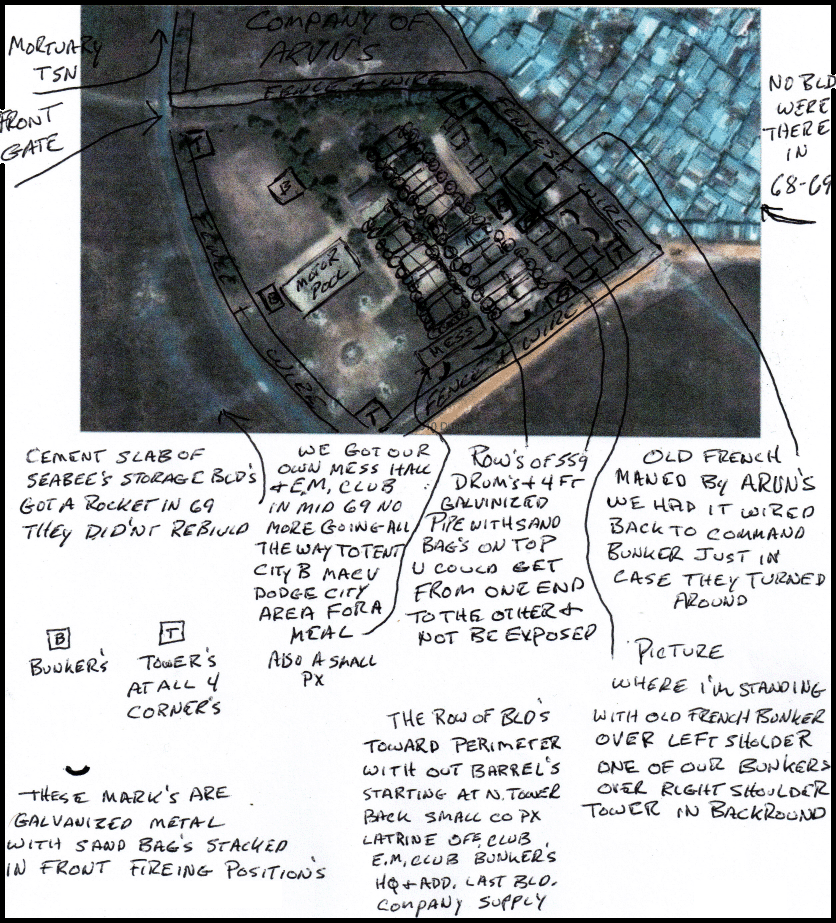 COMPANY OF
ARVN'S
MORTUARY
TSN
FRONT
GATE
FENCE & WIRE
FENCE & WIRE
NO BLD
WERE
THERE
IN
68-69
T
B
FENCE +
WIRE
B
MOTOR
POOL
MESS
FENCE & WIRE
T
T
T
B
CEMENT SLAB OF
SEABEE'S STORAGE BLD'S
GOT A ROCKET IN 69
THEY DID'NT REBIULD
WE GOT OUR
OWN MESS HALL
& E.M. CLUB
IN MID 69 NO
MORE GOING ALL
THE WAY TO TENT
CITY B MACV
DODGE CITY
AREA FOR A
MEAL
ALSO A SMALL
PX
ROW'S OF 559
DRUM'S & 4 FT
GALVINIZED
PIPE WITH SAND
BAG'S ON TOP
U COULD GET
FROM ONE END
TO THE OTHER &
NOT BE EXPOSED
OLD FRENCH
MANED BY ARVN'S
WE HAD IT WIRED
BACK TO COMMAND
BUNKER JUST IN
CASE THEY TURNED
AROUND
B
BUNKER'S
T
TOWER'S
AT ALL 4
CORNER'S
PICTURE
WHERE I'M STANDING
WITH OLD FRENCH BUNKER
OVER LEFT SHOLDER
ONE OF OUR BUNKERS
OVER RIGHT SHOULDER
TOWER IN BACKROUND
THE ROW OF BLD'S
TOWARD PERIMETER
WITH OUT BARREL'S
STARTING AT N. TOWER
BACK SMALL CO PX
LATRINE OFF. CLUB
E.M. CLUB BUNKER'S
HQ & ADD. LAST BLD.
COMPANY SUPPLY
THESE MARK'S ARE
GALVANIZED METAL
WITH SAND BAG'S STACKED
IN FRONT FIREING POSITION'S